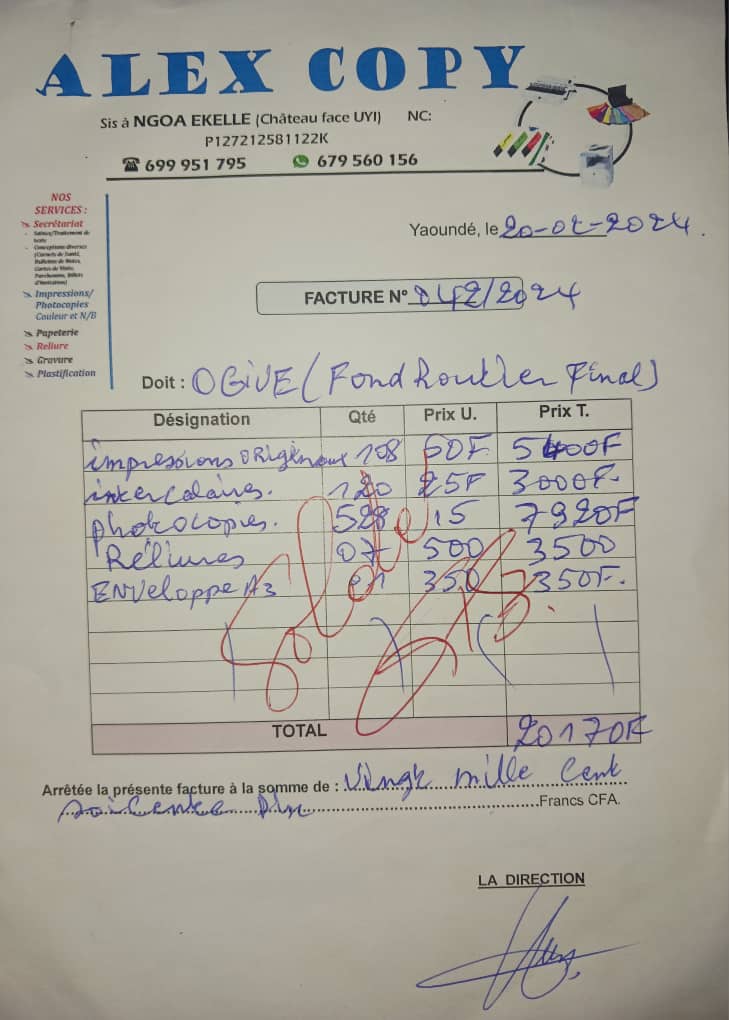 ALEX COPY
Sis à NGOA EKELLE (Château face UYI) NC:
P127212581122K
699 951 795 679 560 156
NOS
SERVICES :
Secrétariat
- Saisies/Traitement de
texte
- Conceptions diverses
(Carnets de Santé,
Bulletins de Notes,
Cartes de Visite,
Parchemins, Billets
d'invitations)
Impressions/
Photocopies
Couleur et N/B
Papeterie
Reliure
Gravure
Plastification
Yaoundé, le 20-02-2024.
FACTURE N° 042/2024
Doit : OGIVE (Fond Routier Final)
Désignation Qté Prix U. Prix T.
impressions originaux 108 50F 5400F
intercalaires. 120 25F 3000F.
photocopies. 528 15 7920F
Réliures 07 500 3500
ENVeloppe A3 350 350F.
Solde
TOTAL 20170F
Arrêtée la présente facture à la somme de : Vingt mille Cent
Francs CFA.
LA DIRECTION